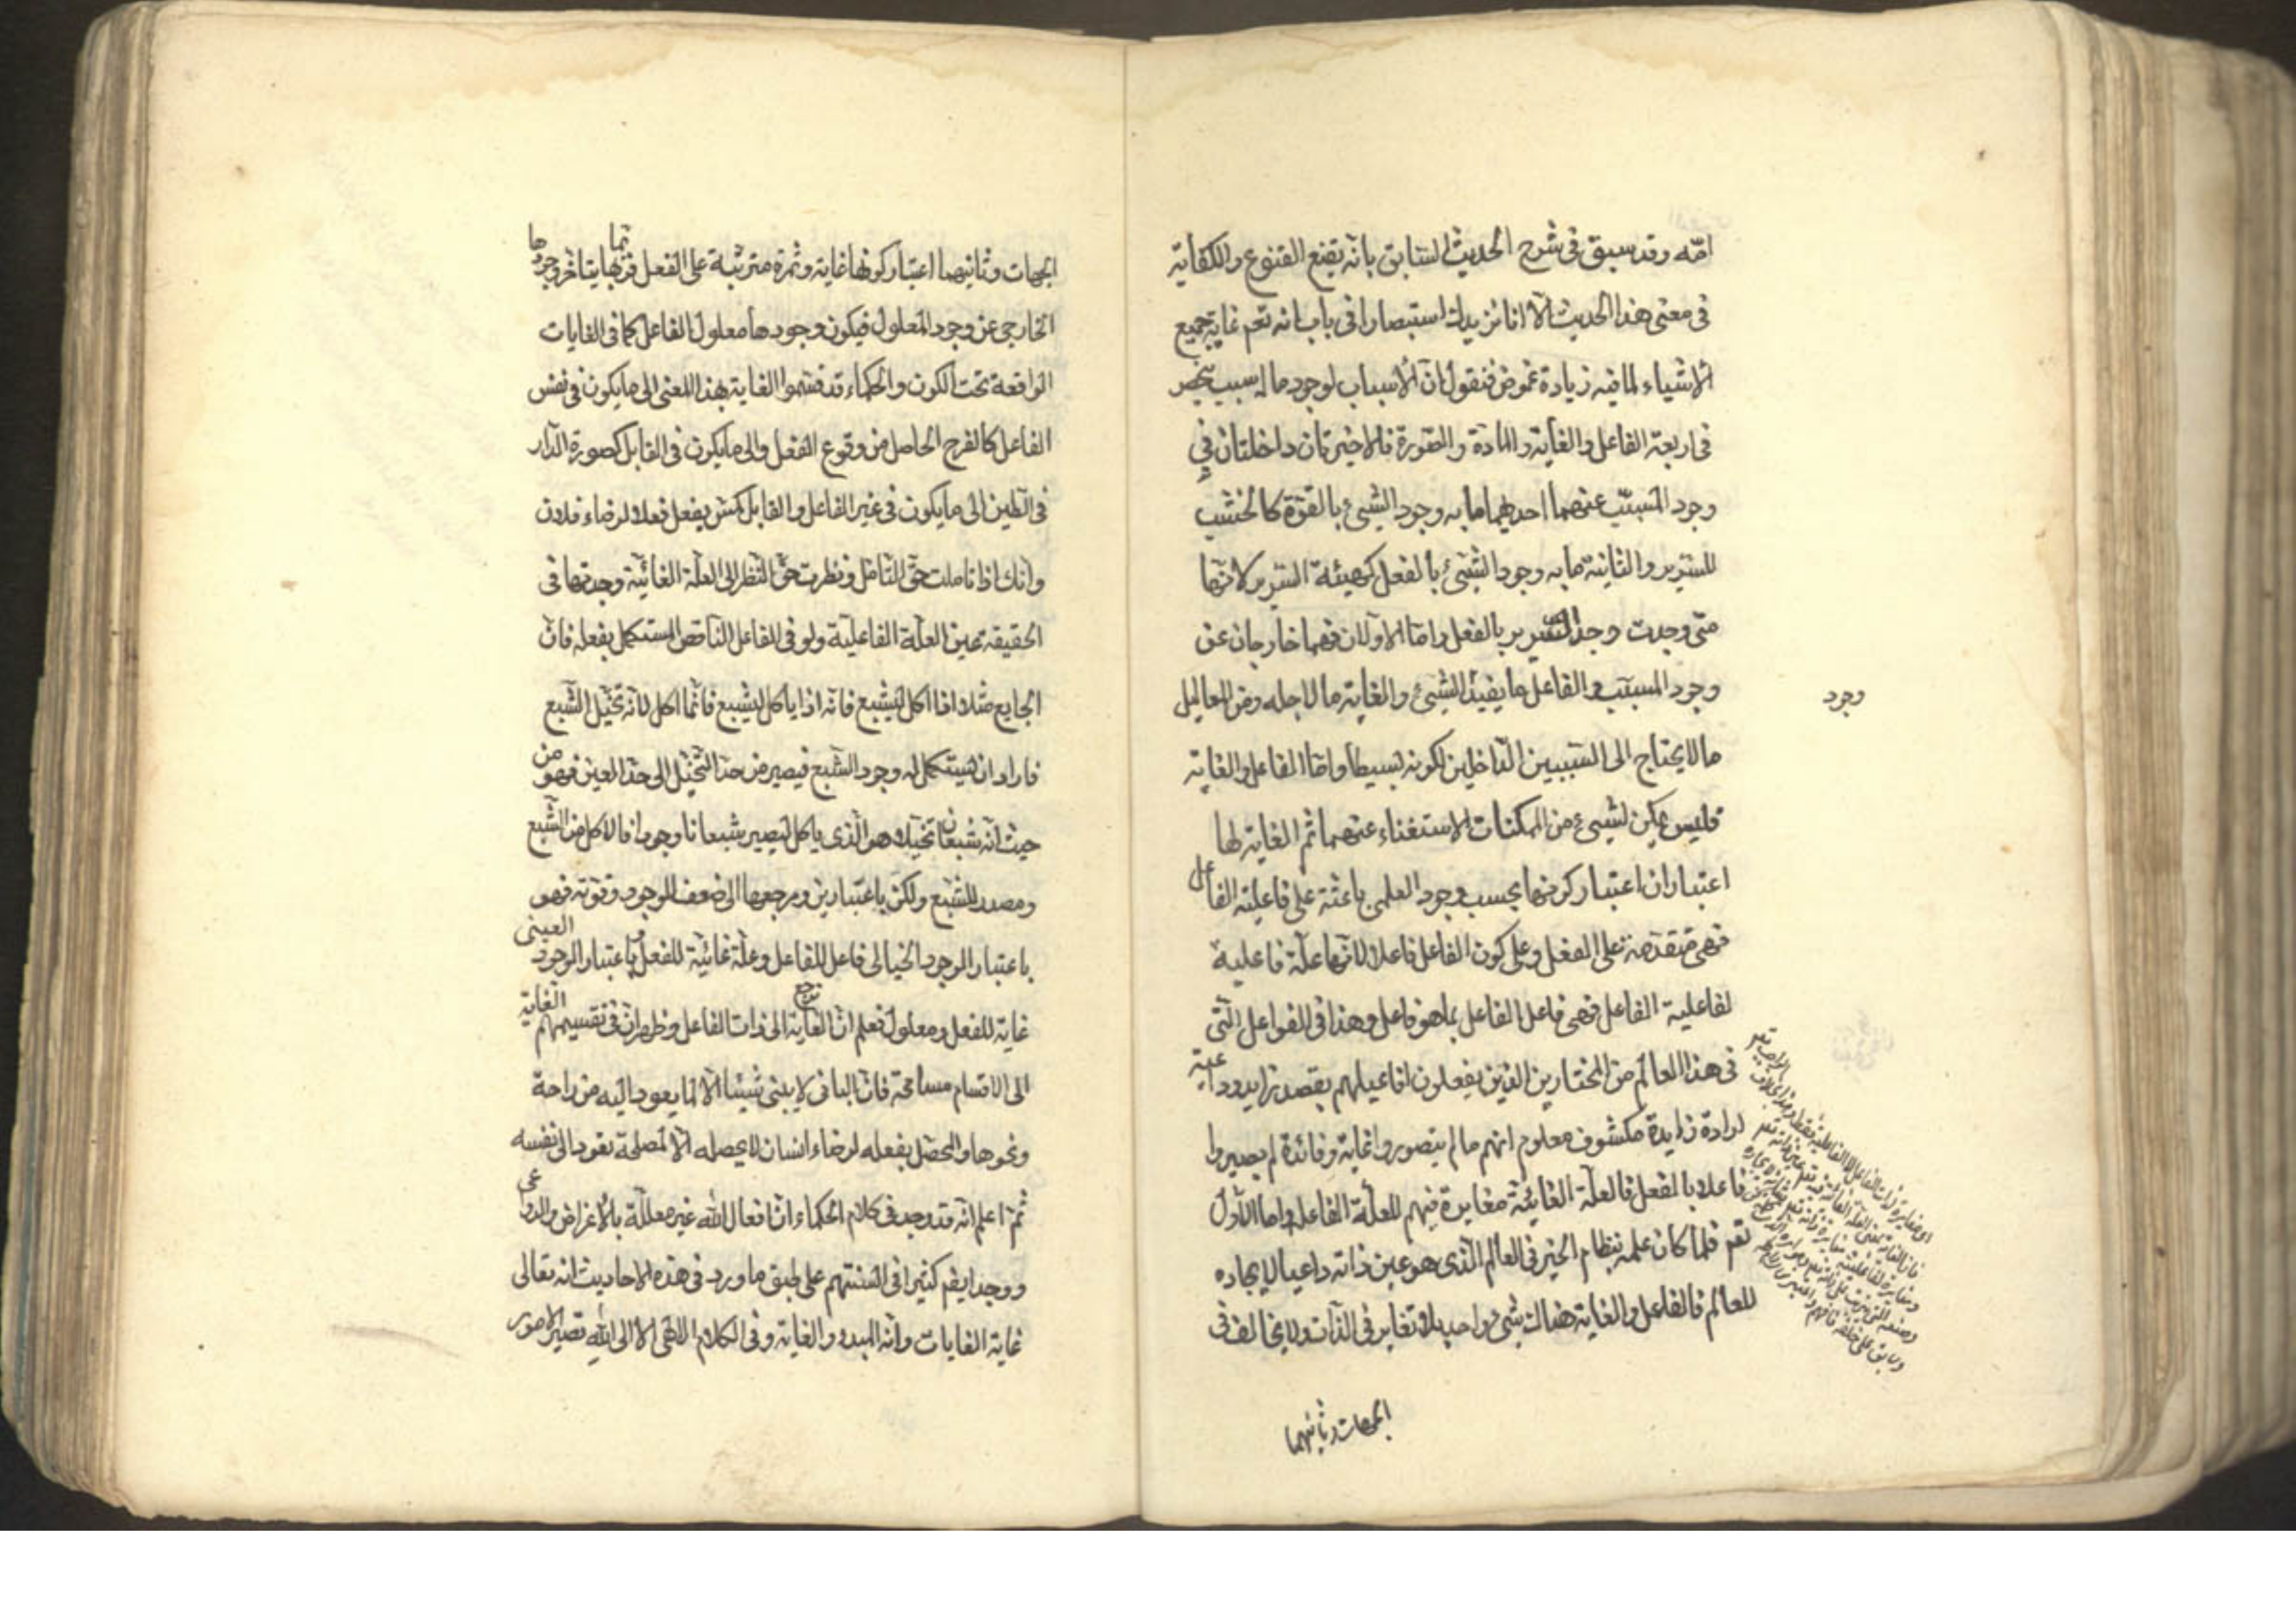 امّه وقد سبق فى شرح الحديث السّابق بانّه يقنع القنوع والكفاية
فى معنى هذا الحديث الّا انا نزيدك استبصارا فى باب انه تعم غاية جميع
الاشياء لما فيه زيادة غموض فنقول انّ الاسباب لوجود ما له سبب ينحصر
فى اربعة الفاعل والغاية والمادّة والصّورة فالاخيرتان داخلتان فى
وجود المسبّب عنهما احدهما ما به وجود الشيئ بالقوّة كالخشب
للسّرير والثانية ما به وجود الشّيئ بالفعل كهيئة السّرير لانّها
متى وجدت وجد السّرير بالفعل وامّا الاوّلان فهما خارجان عن
وجود المسبّب فالفاعل ما يفيد الشيئ والغاية ما لاجله ومن المعاليل
وجود
ما لا يحتاج الى السّببين الدّاخلين لكونه بسيطا وامّا الفاعل والغاية
فليس يمكن لشيئ من الممكنات الاستغناء عنهما ثم الغاية لها
اعتباران اعتبار كونها بحسب وجود العلمى باعثة على فاعلية الفاعل
فهى متقدّمة على الفعل وعلى كون الفاعل فاعلا لانّها علّة فاعلية
لفاعلية الفاعل فهى فاعل الفاعل بما هو فاعل وهذا فى الفواعل الّتى
فى هذا العالم من المختارين الذين يفعلون افاعيلهم بقصد زايد وداعية
لرادة زايدة مكشوف معلوم انهم ما لم يتصوروا غاية وفائدة لم يصيروا
فاعلا بالفعل فالعلّة الغائيّة مغايرة فيهم للعلّة الفاعل واما الاوّل
تعم فلما كان علمه بنظام الخير فى العالم الّذى هو عين ذاته داعيا لايجاده
للعالم فالفاعل والغاية هناك شيئ واحد بلا تغاير فى الذّات ولا يخالف فى
الجهات وثانيهما
الجهات وثانيهما اعتبار كونها غاية وثمرة مترتّبة على الفعل فربّما يتاخر وجودها
الخارجى عن وجود المعلول فيكون وجودها معلول الفاعل كما فى الغايات
الواقعة تحت الكون والحكماء قد قسّموا الغاية بهذا المعنى الى ما يكون فى نفس
الفاعل كالفرح الحاصل من وقوع الفعل والى ما يكون فى القابل كصورة الدّار
فى الطّين الى ما يكون فى غير الفاعل والقابل كمن يفعل فعلا لرضاء فلان
وانّك اذا تاملت حقّ التّامّل ونظرت حقّ النّظر الى العلّة الغائيّة وجدتها فى
الحقيقه عين العلّة الفاعليّة ولو فى الفاعل النّاقص المستكمل بفعله فانّ
الجايع مثلا اذا اكل ليشبع فانّه اذا ياكل ليشبع فانّما اكل لانّه تخيّل الشّبع
فاراد ان يستكمل له وجود الشّبع فيصير من حدّ التّخيّل الى حدّ العين فهو من
حيث انّه شبعان تخيلا هو الّذى ياكل ليصير شبعانا وجودا فالاكل من الشّبع
ومصدر للشّبع ولكن باعتبارين ومرجعها الى ضعف الوجود وقوّته فهو
باعتبار الوجود الخيالى فاعل للفاعل وعلّة غائيّة للفعل وباعتبار الوجود العينى
غاية للفعل ومعلول فعلم انّ الغاية ترجع الى ذات الفاعل وظهر انّ فى تقسيمهم الغاية
الى الاقسام مسامحة فانّ البانى لا يبنى شيئا الّا لما يعود اليه من راحة
ونحوها والمحصّل بفعله لرضاء انسان لا يحصله الّا لمصلحة تعود الى نفسه
ثمّ اعلم انّه قد وجد فى كلام الحكماء انّ افعال اللّه غير معللّة بالاغراض والدواعى
ووجد ايضم كثيرا فى السنتهم على طبق ما ورد فى هذه الاحاديث انه تعالى
غاية الغايات وانّه المبدء والغاية وفى الكلام الالهى الا الى اللّه تصير الامور